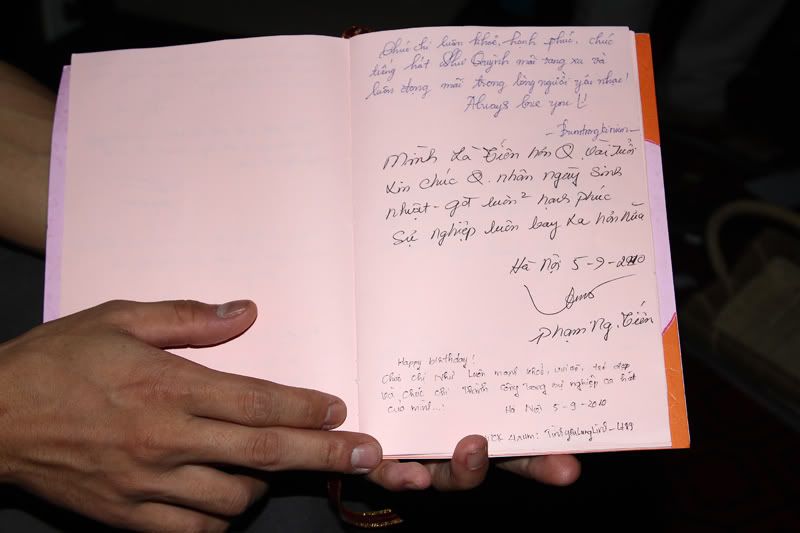 Chúc chị luôn khỏe, hạnh phúc, chúc
tiếng hát Như Quỳnh mãi vang xa và
luôn đọng mãi trong lòng người yêu nhạc!
Always love you!
Mình là Tiến hơn Q. vài tuổi
Xin chúc Q. nhân ngày sinh
nhật - gđ luôn² hạnh phúc
Sự nghiệp luôn bay xa hơn nữa
Hà Nội 5-9-2010
Phạm Ng. Tiến
Happy birthday!
Chúc chị Như luôn mạnh khoẻ, vui vẻ, trẻ đẹp
và chúc chị thành công trong sự nghiệp ca hát
của mình...!
Hà Nội 5-9-2010